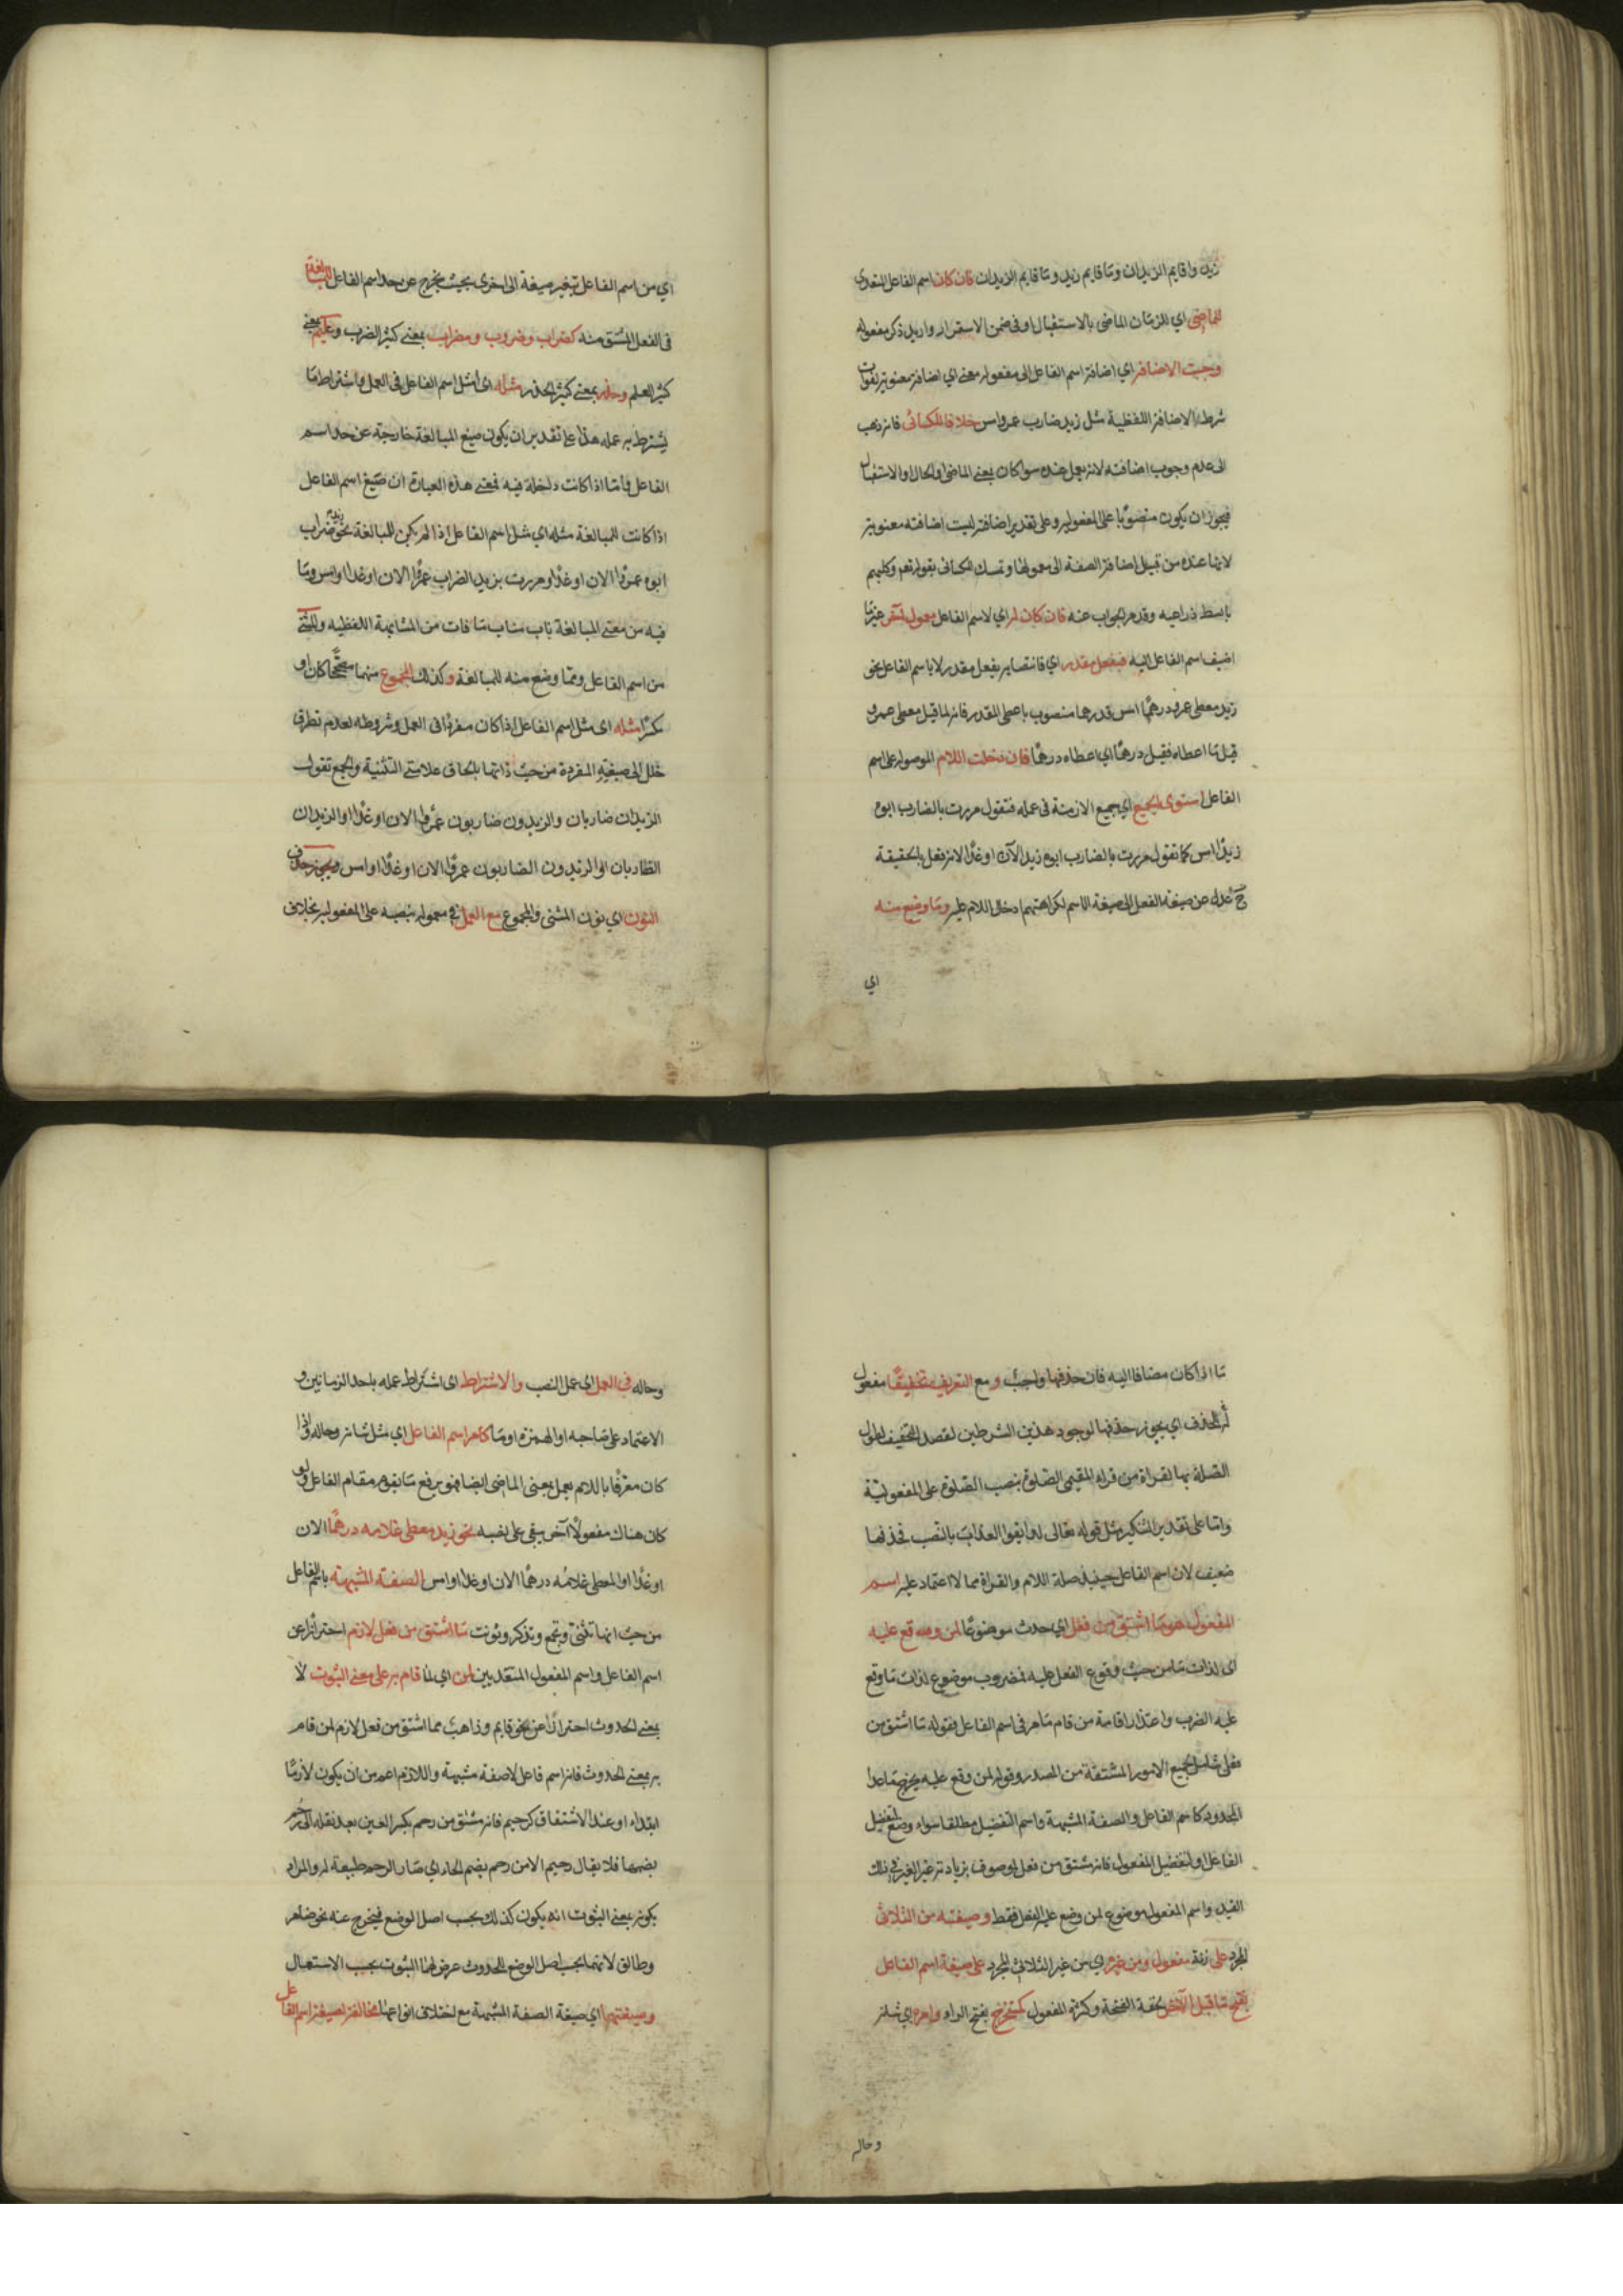 زيد واقايم الزيدان وما قايم زيد وما قايم الزيدان فان كان اسم الفاعل المتعدى
للماضى اي للزمان الماضى بالاستقبال او فى ضمن الاستمرار واريد ذكر مفعوله
وجبت الاضافة اي اضافة اسم الفاعل الى مفعوله معنى اي اضافة معنوية لفوات
شرط الاضافة اللفظية مثل زيد ضارب عمرو امس خلافا للكسائى فانه ذهب
الى عدم وجوب اضافته لانه يعمل عنده سوا كان بمعنى الماضى او الحال او الاستقبال
فيجوز ان يكون منصوبا على المفعولية وعلى تقدير اضافته ليست اضافته معنوية
لانها عنده من قبيل اضافة الصفة الى معمولها وتمسك الكسائى بقوله تعم وكلبهم
باسط ذراعيه وقد مر الجواب عنه فان كان له اي لاسم الفاعل معمول آخر غير ما
اضيف اسم الفاعل اليه فبفعل مقدر اي فانتصابه بفعل مقدر لا باسم الفاعل نحو
زيد معطى عمرو درهما امس فدرهما منصوب باعطى المقدر فانه لما قيل معطى عمرو
قيل ما اعطاه فقيل درهما اي اعطاه درهما فان دخلت اللام الموصولة على اسم
الفاعل استوى الجميع اي جميع الازمنة فى عمله فتقول مررت بالضارب ابوه
زيدا امس كما تقول مررت بالضارب ابوه زيدا الآن او غدا لانه فعل بالحقيقة
ح عدل عن صيغة الفعل الى صيغة الاسم لكراهتهم ادخال اللام عليه وما وضع منه
اي
اي من اسم الفاعل بتغير صيغة الى اخرى بحيث يخرج عن حد اسم الفاعل للمبالغة
فى الفعل المشتق منه كضراب وضروب ومضراب بمعنى كثير الضرب وعليم بمعنى
كثير العلم وحذر بمعنى كثير الحذر مثله اى مثل اسم الفاعل فى العمل واشتراط ما
يشترط به عمله هذا على تقدير ان يكون صيغ المبالغة خارجة عن حد اسم
الفاعل واما اذا كانت داخلة فيه فمعنى هذه العبارة ان صيغ اسم الفاعل
اذا كانت للمبالغة مثله اي مثل اسم الفاعل اذا لم يكن للمبالغة نحو زيد ضراب
ابوه عمروا الان او غدا ومررت بزيد الضراب عمروا الان او غدا او امس وما
فيه من معنى المبالغة ناب مناب ما فات من المشابهة اللفظيه والمثنى
من اسم الفاعل ومما وضع منه للمبالغة وكذلك المجموع منهما مصححا كان او
مكسرا مثله اى مثل اسم الفاعل اذا كان مفردا فى العمل وشروطه لعدم تطرق
خلل الى صيغته المفردة من حيث ذاتها بالحاق علامتى التثنية والجمع تقول
الزيدان ضاربان والزيدون ضاربون عمروا الان او غدا او الزيدان
الظاربان او الزيدون الضاربون عمروا الان او غدا او امس ويجوز حذف
النون اي نون المثنى والمجموع مع العمل فى معموله بنصبه على المفعولية بخلاف
ما اذا كان مضافا اليه فان حذفها واجب ومع التعريف تخفيفا مفعول
له للحذف اي يجوز حذفها لوجود هذين الشرطين لقصد التخفيف لطول
الصلة بها لقراة من قراء المقيمى الصلوة بنصب الصلوة على المفعولية
واما على تقدير التنكير مثل قوله تعالى لذايقوا العذاب بالنصب فحذفها
ضعيف لان اسم الفاعل حينئذ صلة اللام والقراة مما لا اعتماد عليه اسم
المفعول هو ما اشتق من فعل اي حدث موضوعا لمن وقع عليه
اى لذات ما من حيث وقوع الفعل عليه فمضروب موضوع لذات ما وقع
عليه الضرب واعتذار اقامة من مقام ما مر فى اسم الفاعل فقوله ما اشتق من
فعل شامل لجميع الامور المشتقة من المصدر وقوله لمن وقع عليه يخرج ما عدا
المحدود كاسم الفاعل والصفة المشبهة واسم التفضيل مطلقا سواء وضع لتفضيل
الفاعل او لتفضيل المفعول فانه مشتق من فعل لموصوف بزيادة على الغير فى ذلك
القيد واسم المفعول موضوع لمن وقع عليه الفعل فقط وصيغته من الثلاثى
المجرد على زنة مفعول ومن غيره اي من غير الثلاثى المجرد على صيغة اسم الفاعل
بفتح ما قبل الآخر لخفة الفتحة وكثرة المفعول كمستخرج بفتح الراء وامره اي شانه
وحاله
وحاله فى العمل اي عمل النصب والاشتراط اى اشتراط عمله باحد الزمانين و
الاعتماد على صاحبه او الهمزة او ما كامر اسم الفاعل اي مثل شانه وحاله اذا
كان معرفا باللام يعمل بمعنى الماضى ايضا فهو يرفع ما يقوم مقام الفاعل ولو
كان هناك مفعولا آخر يبقى على نصبه نحو زيد معطى غلامه درهما الان
او غدا او المعطى غلامه درهما الان او غدا او امس الصفة المشبهة باسم الفاعل
من حيث انها تثنى وتجمع وتذكر وتونث ما اشتق من فعل لازم احترازا عن
اسم الفاعل واسم المفعول المتعديين لمن اي لما قام به على معنى الثبوت لا
بمعنى الحدوث احترازا عن نحو قايم وذاهب مما اشتق من فعل لازم لمن قام
به بمعنى الحدوث فانه اسم فاعل لا صفة مشبهة واللازم اعم من ان يكون لازما
ابتداء او عند الاشتقاق كرحيم فانه مشتق من رحم بكسر العين بعد نقله الى رحم
بضمها فلا يقال رحيم الا من رحم بضم الحاء اي صار الرحم طبيعة له والمراد
بكونه بمعنى الثبوت انه يكون كذلك بحسب اصل الوضع فيخرج عنه نحو ضامر
وطالق لانهما بحسب اصل الوضع للحدوث عرض لهما الثبوت بحسب الاستعمال
وصيغتها اي صيغة الصفة المشبهة مع اختلاف انواعها مخالفة لصيغة اسم الفاعل